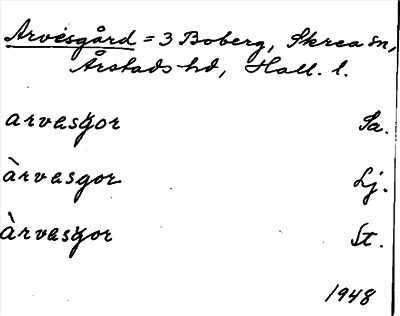 Arvesgård = 3 Boberg, Skrea sn,
Årstads hd, Hall. l.
arvesgor Sa.
àrvesgor Lj.
àrvesgor St.
1948